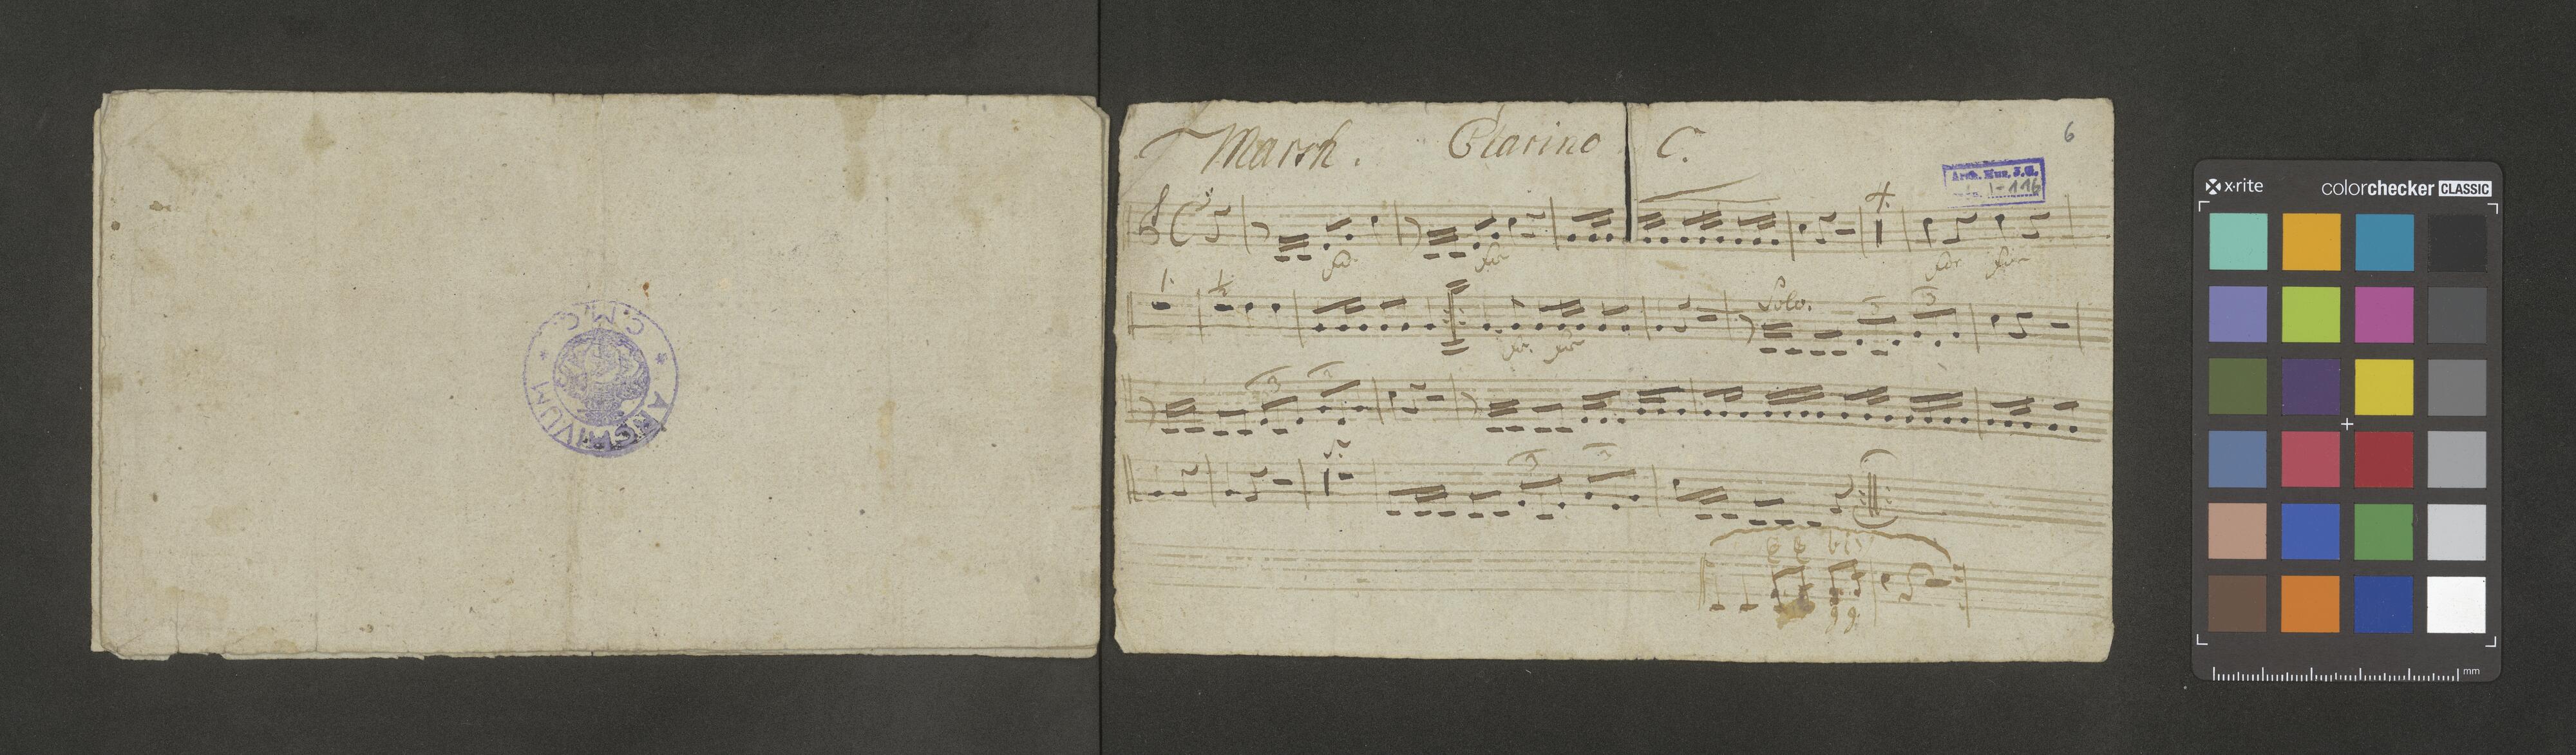 ARCHIVUM * C.M.C. *
Marsh. Clarino C.
6
Arch. Muz. J.G.
I-116
4.
for
1.
1/2
Solo.
3 3
3
3 3
x·rite colorchecker CLASSIC
mm